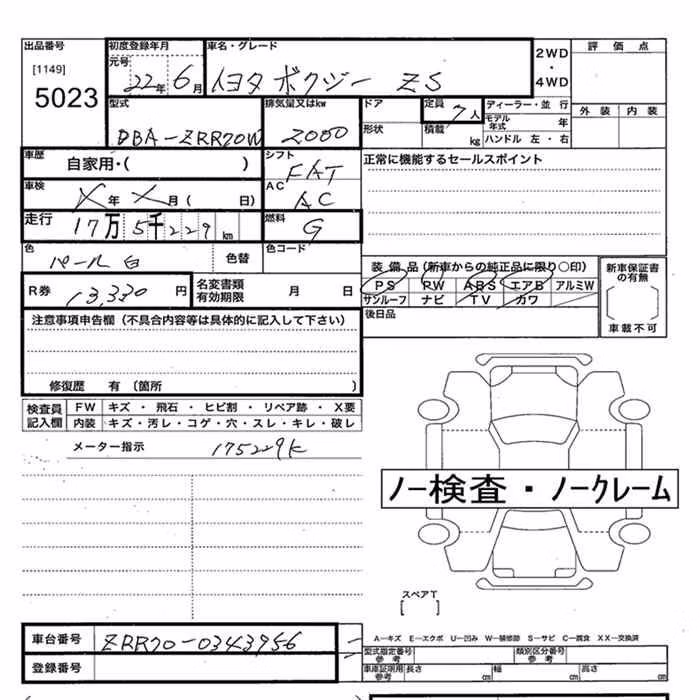 出品番号 初度登録年月 車名・グレード 2WD 評価点
[1149] 元号 ・
5023 22年 6月 トヨタ ボクシー ZS 4WD
型式 排気量又はkw ドア 定員 7人 ディーラー・並行 外装 内装
DBA-ZRR70W 2000 形状 積載 kg モデル年式 年
ハンドル 左・右
車歴 自家用・( ) シフト FAT 正常に機能するセールスポイント
車検 X年 X月 ( 日) AC AC
走行 17万 5千 229 km 燃料 G
色 パール白 色替 色コード
装備品(新車からの純正品に限り○印) 新車保証書の有無
PS PW ABS エアB アルミW
サンルーフ ナビ TV カワ
R券 13,330 円 名変書類有効期限 月 日 後日品 車載不可
注意事項申告欄(不具合内容等は具体的に記入して下さい)
修復歴 有 〔箇所 〕
検査員記入欄 FW キズ ・ 飛石 ・ ヒビ割 ・ リペア跡 ・ X要
内装 キズ・汚レ・コゲ・穴・スレ・キレ・破レ
メーター指示 175229K
ノー検査・ノークレーム
スペアT
[ ]
車台番号 ZRR70-0343956
A―キズ E―エクボ U―凹み W―補修跡 S―サビ C―腐食 XX―交換済
登録番号
型式指定番号 参考 類別区分番号 参考
車庫証明用 参考 長さ cm 幅 cm 高さ cm